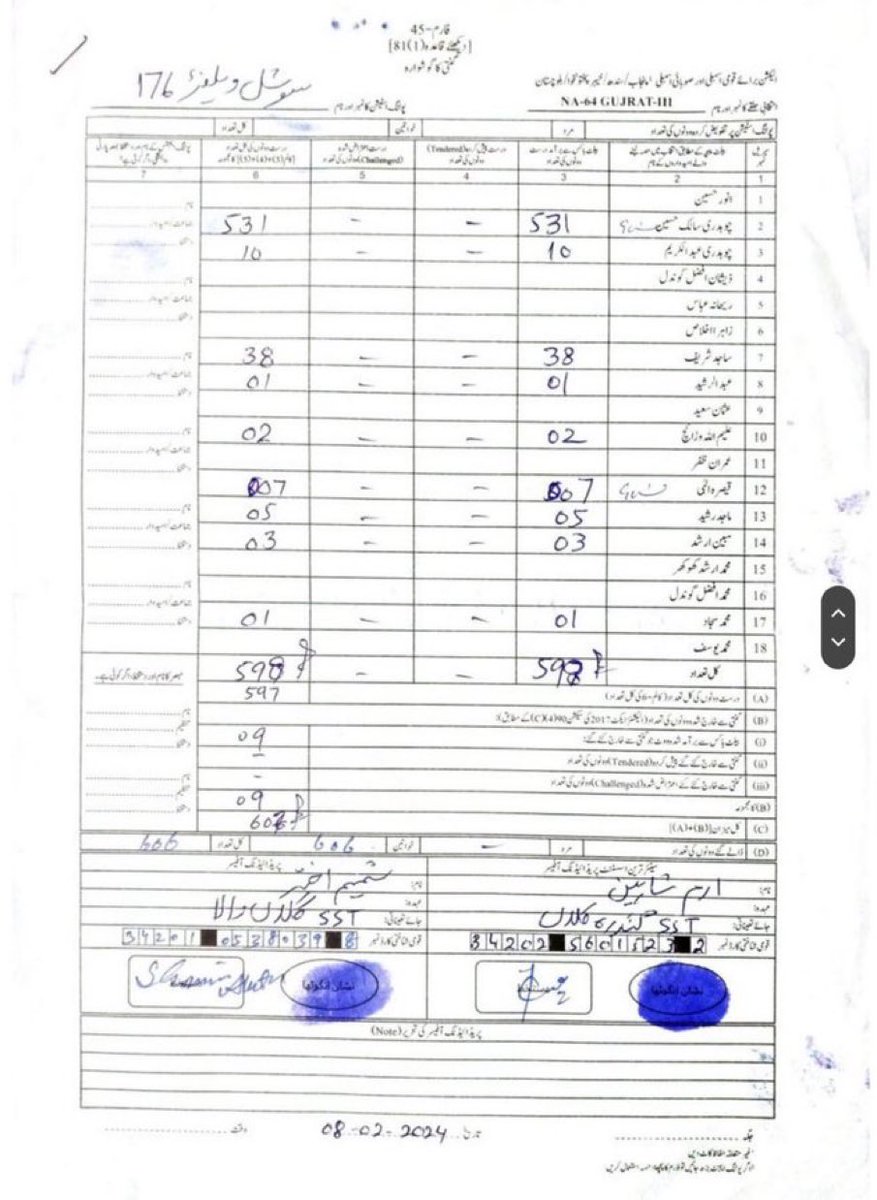 فارم-45
[دیکھئے قاعدہ (1)81]
گنتی کا گوشوارہ
الیکشن برائے قومی اسمبلی اور صوبائی اسمبلی /پنجاب/سندھ/خیبر پختونخوا/بلوچستان
انتخابی حلقے کا نمبر اور نام NA-64 GUJRAT-III پولنگ اسٹیشن کا نمبر اور نام سوشل ویلفیئر 176
پولنگ اسٹیشن پر تفویض کردہ ووٹوں کی تعداد مرد خواتین کل تعداد
1 2 3 4 5 6 7
1 انور حسین نام
2 چوہدری سالک حسین 531 - - 531
3 چوہدری عبدالکریم 10 - - 10 دستخط
4 ذیشان افضل گوندل نام
5 ریحانہ عباس
6 زاہر اخلاص دستخط
7 ساجد شریف 38 - - 38 نام
8 عبدالرشید 01 - - 01
9 عثمان سعید دستخط
10 علیم اللہ وڑائچ 02 - - 02 نام
11 عمران ظفر
12 قیصرہ الٰہی 007 - - 007 دستخط
13 ماجد رشید 05 - - 05 نام
14 مبین ارشد 03 - - 03
15 محمد ارشد کھوکھر
16 محمد افضل گوندل نام
17 محمد سجاد 01 - - 01
18 محمد یوسف
کل تعداد 598 - - 598
(A) درست ووٹوں کی کل تعداد 597
(B) گنتی سے خارج شدہ ووٹوں کی تعداد (الیکشنز ایکٹ 2017 کی سیکشن 90(4)(C) کے مطابق):
(i) بیلٹ باکس سے برآمد شدہ ووٹ جو گنتی سے خارج کئے گئے: 09
(ii) گنتی سے خارج کئے گئے پیش کردہ (Tendered) ووٹوں کی تعداد -
(iii) گنتی سے خارج کئے گئے اعتراض شدہ (Challenged) ووٹوں کی تعداد -
(B) کا مجموعہ 09
(C) کل میزان [(A)+(B)] 606
(D) ڈالے گئے ووٹوں کی تعداد مرد - خواتین 606 کل تعداد 606
سینئر ترین اسسٹنٹ پریذائیڈنگ آفیسر
نام: ارم شاہین
عہدہ: SST
جائے تعیناتی:
قومی شناختی کارڈ نمبر 34202 5601523 2
نشان انگوٹھا
پریذائیڈنگ آفیسر
نام: شمیم اختر
عہدہ: SST
جائے تعیناتی:
قومی شناختی کارڈ نمبر 34201 0538039 8
نشان انگوٹھا
پریذائیڈنگ آفیسر کی تحریر (Note)
جگہ
تاریخ 08-02-2024 وقت